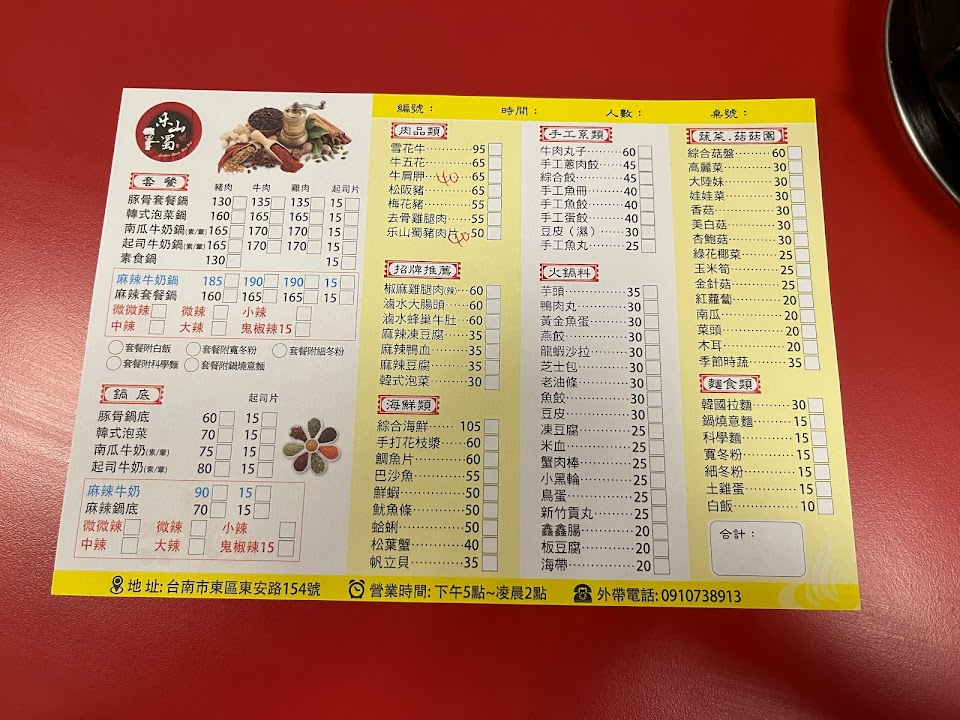 乐山蜀
套餐 豬肉 牛肉 雞肉 起司片
豚骨套餐鍋 130 135 135 15
韓式泡菜鍋 160 165 165 15
南瓜牛奶鍋(素/葷) 165 170 170 15
起司牛奶鍋(素/葷) 165 170 170 15
素食鍋 130 15
麻辣牛奶鍋 185 190 190 15
麻辣套餐鍋 160 165 165 15
微微辣 微辣 小辣
中辣 大辣 鬼椒辣15
套餐附白飯 套餐附寬冬粉 套餐附細冬粉
套餐附科學麵 套餐附鍋燒意麵
鍋底 起司片
豚骨鍋底 60 15
韓式泡菜 70 15
南瓜牛奶(素/葷) 75 15
起司牛奶(素/葷) 80 15
麻辣牛奶 90 15
麻辣鍋底 70 15
微微辣 微辣 小辣
中辣 大辣 鬼椒辣15
編號： 時間： 人數： 桌號：
肉品類
雪花牛 95
牛五花 65
牛肩胛 40 65
松阪豬 65
梅花豬 55
去骨雞腿肉 55
乐山蜀豬肉片 40 50
招牌推薦
椒麻雞腿肉(辣) 60
滷水大腸頭 60
滷水蜂巢牛肚 60
麻辣凍豆腐 35
麻辣鴨血 35
麻辣豆腐 35
韓式泡菜 30
海鮮類
綜合海鮮 105
手打花枝漿 60
鯛魚片 60
巴沙魚 55
鮮蝦 50
魷魚條 50
蛤蜊 50
松葉蟹 40
帆立貝 35
手工系類
牛肉丸子 60
手工蔥肉餃 45
綜合餃 45
手工魚冊 40
手工魚餃 40
手工蛋餃 40
豆皮（濕） 30
手工魚丸 25
火鍋料
芋頭 35
鴨肉丸 30
黃金魚蛋 30
燕餃 30
龍蝦沙拉 30
芝士包 30
老油條 30
魚餃 30
豆皮 30
凍豆腐 25
米血 25
蟹肉棒 25
小黑輪 25
鳥蛋 25
新竹貢丸 25
鑫鑫腸 20
板豆腐 20
海帶 20
蔬菜.菇菇園
綜合菇盤 60
高麗菜 30
大陸妹 30
娃娃菜 30
香菇 30
美白菇 30
杏鮑菇 30
綠花椰菜 25
玉米筍 25
金針菇 25
紅蘿蔔 20
南瓜 20
菜頭 20
木耳 20
季節時蔬 35
麵食類
韓國拉麵 30
鍋燒意麵 15
科學麵 15
寬冬粉 15
細冬粉 15
土雞蛋 15
白飯 10
合計：
地址: 台南市東區東安路154號 營業時間: 下午5點~凌晨2點 外帶電話: 0910738913